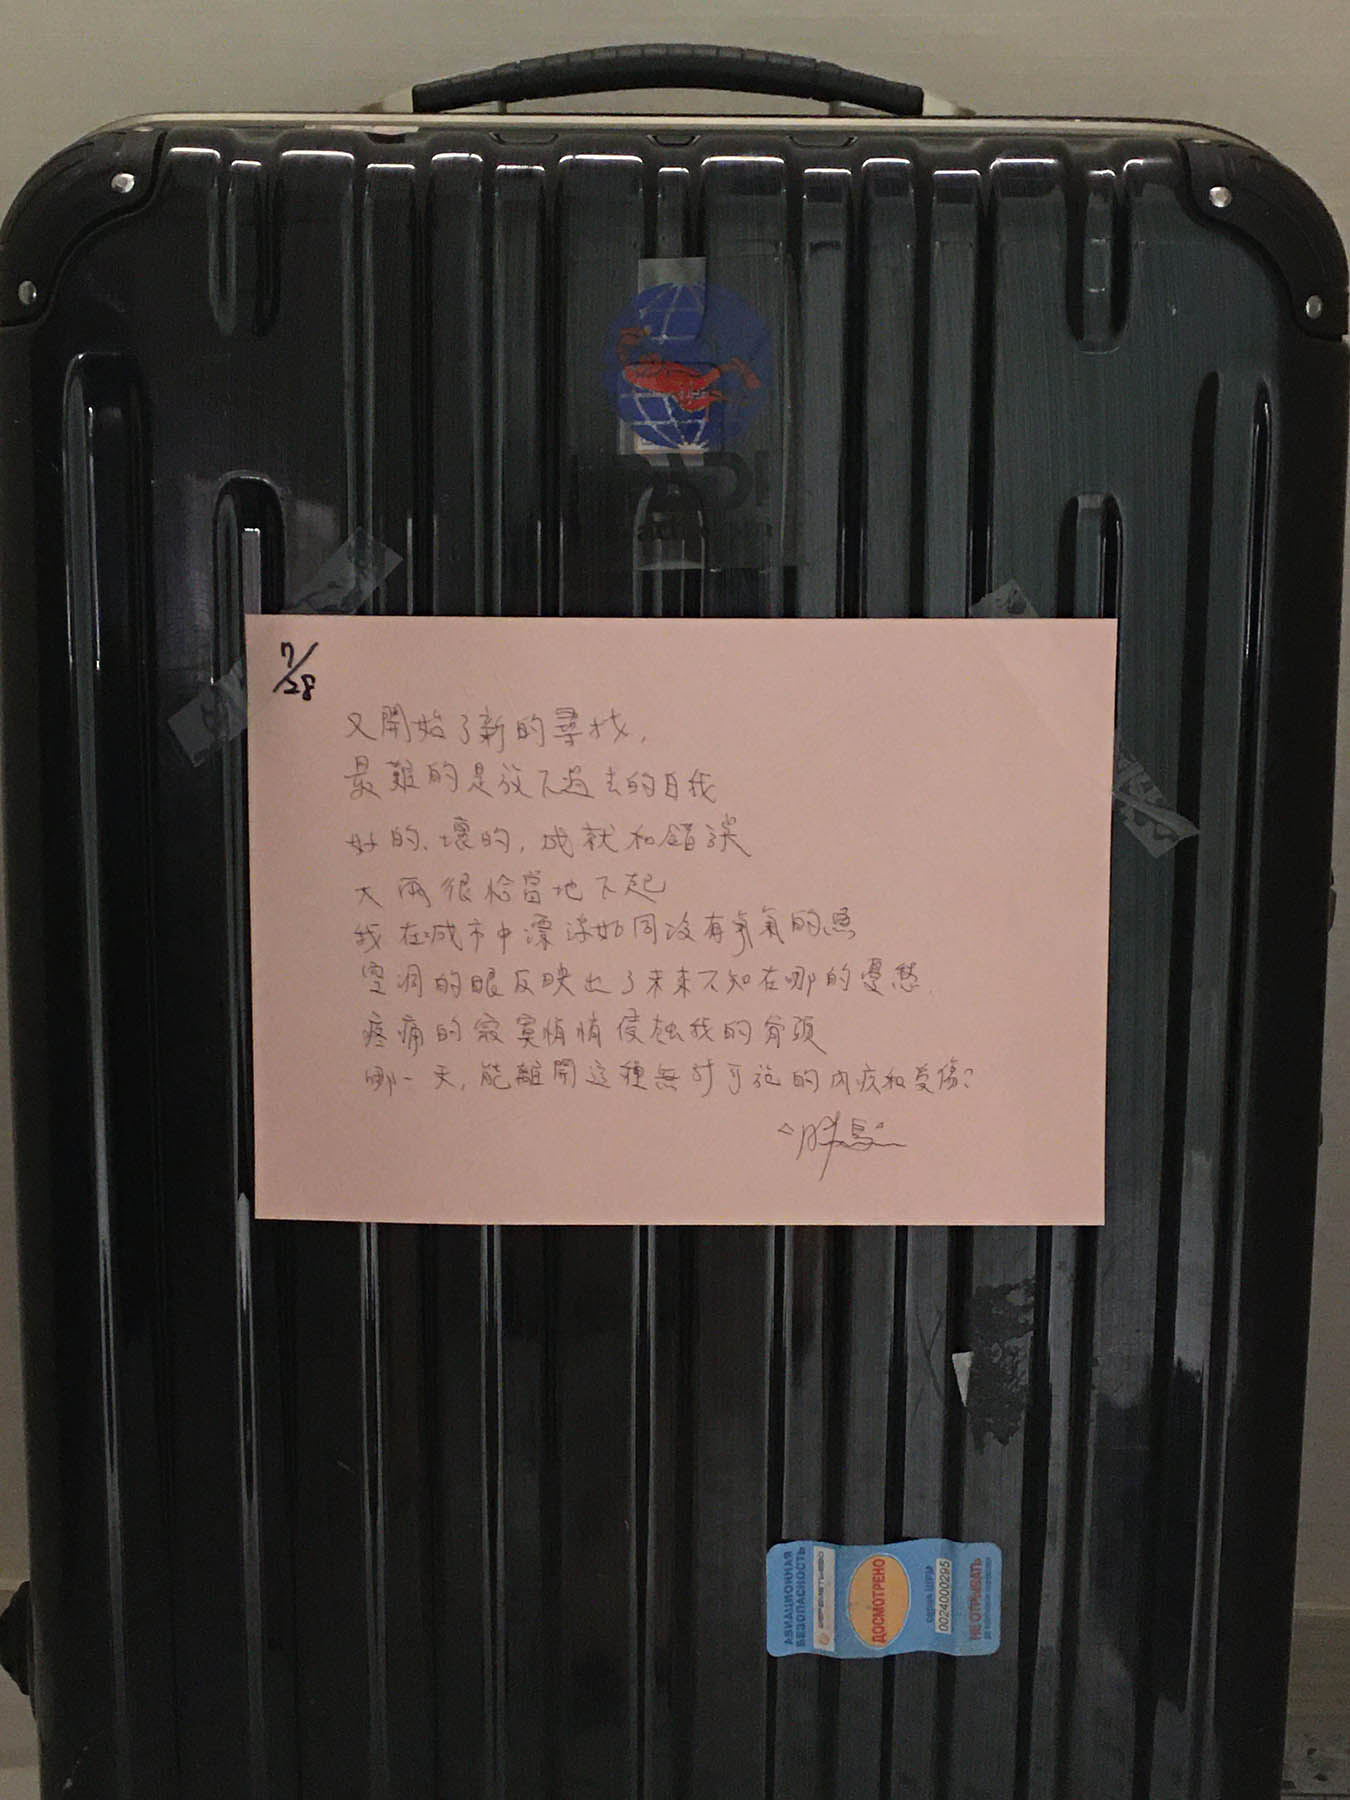 PADI
padi.com
7/28
又開始了新的尋找,
最難的是放下過去的自我
好的、壞的,成就和錯誤
大雨很恰當地下起
我在城市中漂流如同沒有氧氣的魚
空洞的眼反映出了未來不知在哪的憂愁.
疼痛的寂寞悄悄侵蝕我的骨頭
哪一天,能離開這種無計可施的內疚和受傷?
АВИАЦИОННАЯ
БЕЗОПАСНОСТЬ
ШЕРЕМЕТЬЕВО
ДОСМОТРЕНО
0024000295
НЕ ОТРЫВАТЬ